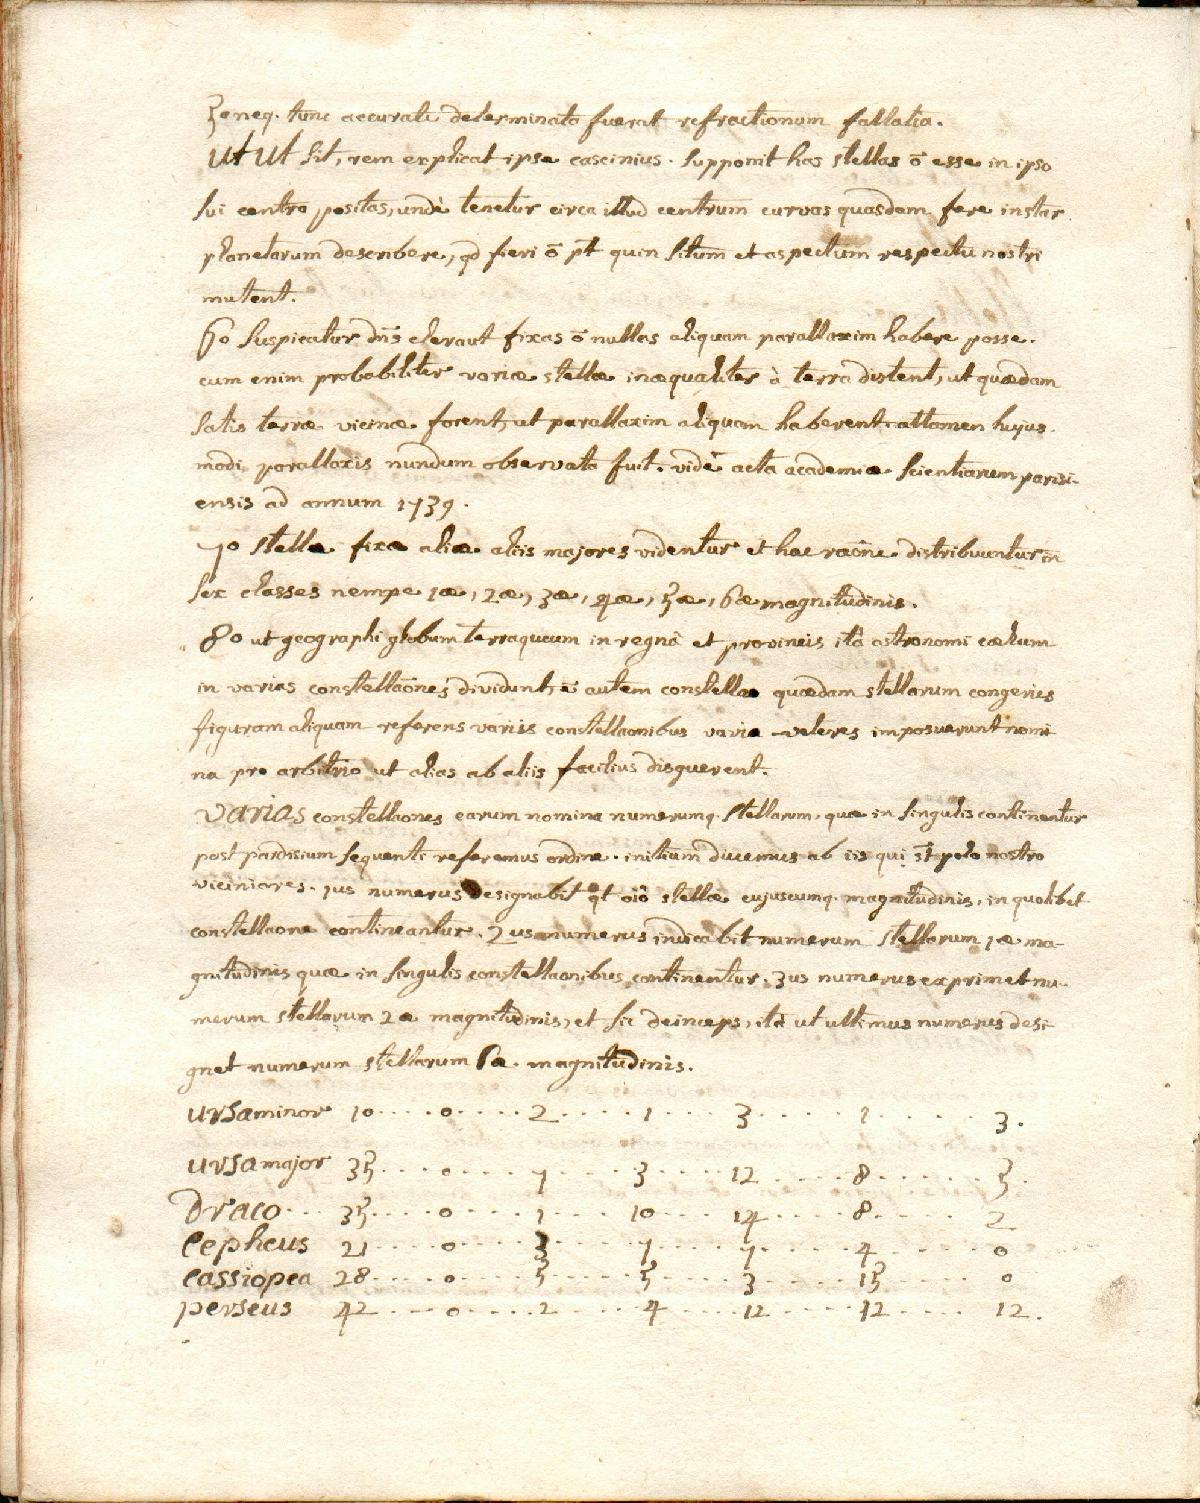 5o neq. tunc accurate determinata fuerat refractionum fallatia.
ut ut sit, rem explicat ipse cascinius. supponit has stellas ō esse in ipso
sui centro positas, undè tenetur circa illud centrum curvas quasdam fere instar
planetarum describere, qd fieri ō pt̄ quin situm et aspectum respectu nostri
mutent.
6o suspicatur dn̄s cleraut fixas ō nullas aliquam parallaxim habere posse.
cum enim probabiliter variæ stellæ inæqualiter à terra distent, ut quædam
satis terræ vicinæ forent, ut parallaxim aliquam haberent. attamen hujus
modi parallaxis nundum observata fuit. vidè acta academiæ scientiarum parisi-
ensis ad annum 1739.
7o stellæ fixæ aliæ aliis majores videntur et hac raōne distribuuntur in
sex classes nempe 1æ, 2æ, 3æ, 4æ, 5æ, 6æ magnitudinis.
8o ut geographi globum terraqueum in regna et provincis ità astronomi cælum
in varias constellaōnes dividunt, ē autem constellao quædam stellarum congeries
figuram aliquam referens variis constellaonibus varia veteres imposuerunt nomi
na pro arbitrio ut alias ab aliis facilius disquerent.
varias constellaones earum nomina numerumq. stellarum, quæ in singulis continentur
post pardisium sequenti referemus ordine. initium ducemus ab iis qui st̄ polo nostro
viciniores. 1us numerus designabit qt oiō stellæ cujuscumq. magnitudinis, in quolibet
constellaone contineantur. 2us numerus indicabit numerum stellarum 1æ ma-
gnitudinis quæ in singulis constellaonibus continentur. 3us numerus exprimet nu-
merum stellarum 2æ magnitudinis, et sic deinceps, ità ut ultimus numerus desi
gnet numerum stellarum 6æ. magnitudinis.
ursa minor 10 .... 0 .... 2 .... 1 .... 3 .... 1 .... 3.
ursa major 35 .... 0 .... 7 .... 3 .... 12 .... 8 .... 5.
Draco ... 35 .... 0 .... 1 .... 10 .... 14 .... 8 .... 2
Cepheus 21 .... 0 .... 3 .... 7 .... 7 .... 4 .... 0
cassiopea 28 .... 0 .... 5 .... 5 .... 3 .... 15 .... 0
perseus 42 .... 0 .... 2 .... 4 .... 12 .... 12 .... 12.